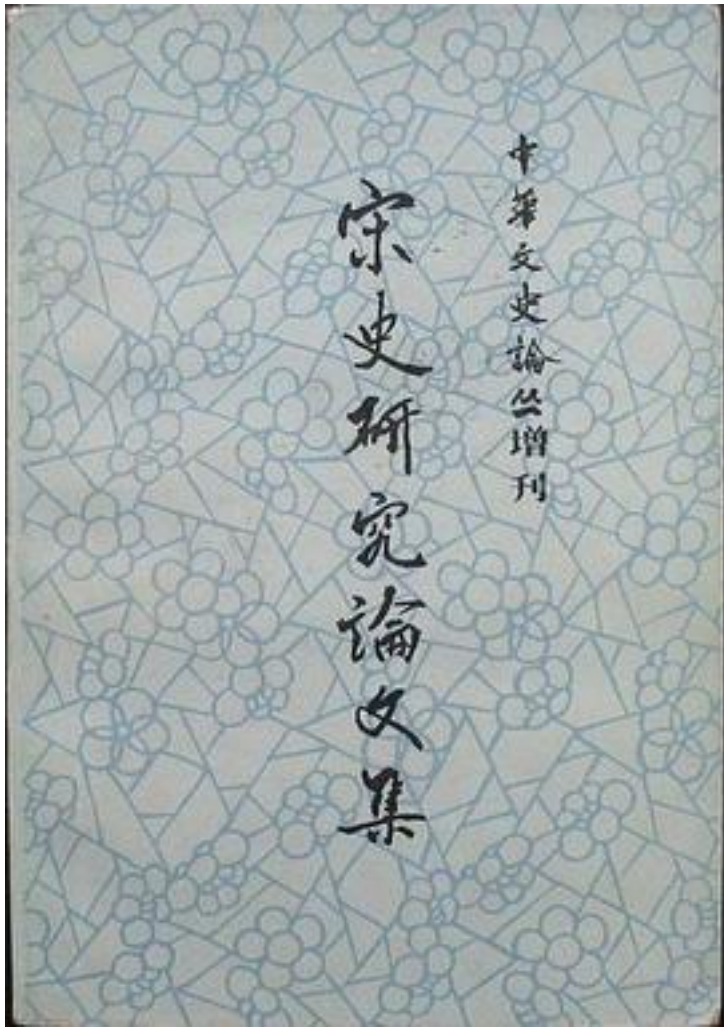 中華文史論丛增刊
宋史研究論文集